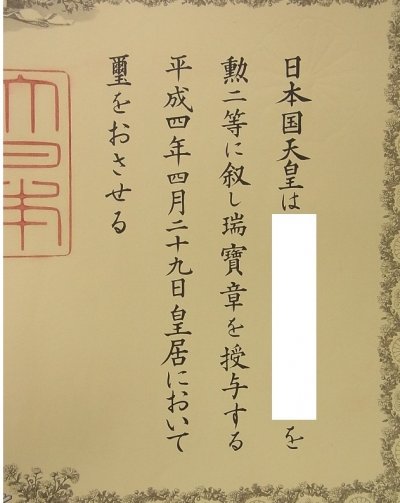 日本国天皇は
を
勲二等に叙し瑞寶章を授与する
平成四年四月二十九日皇居において
璽をおさせる
大日本